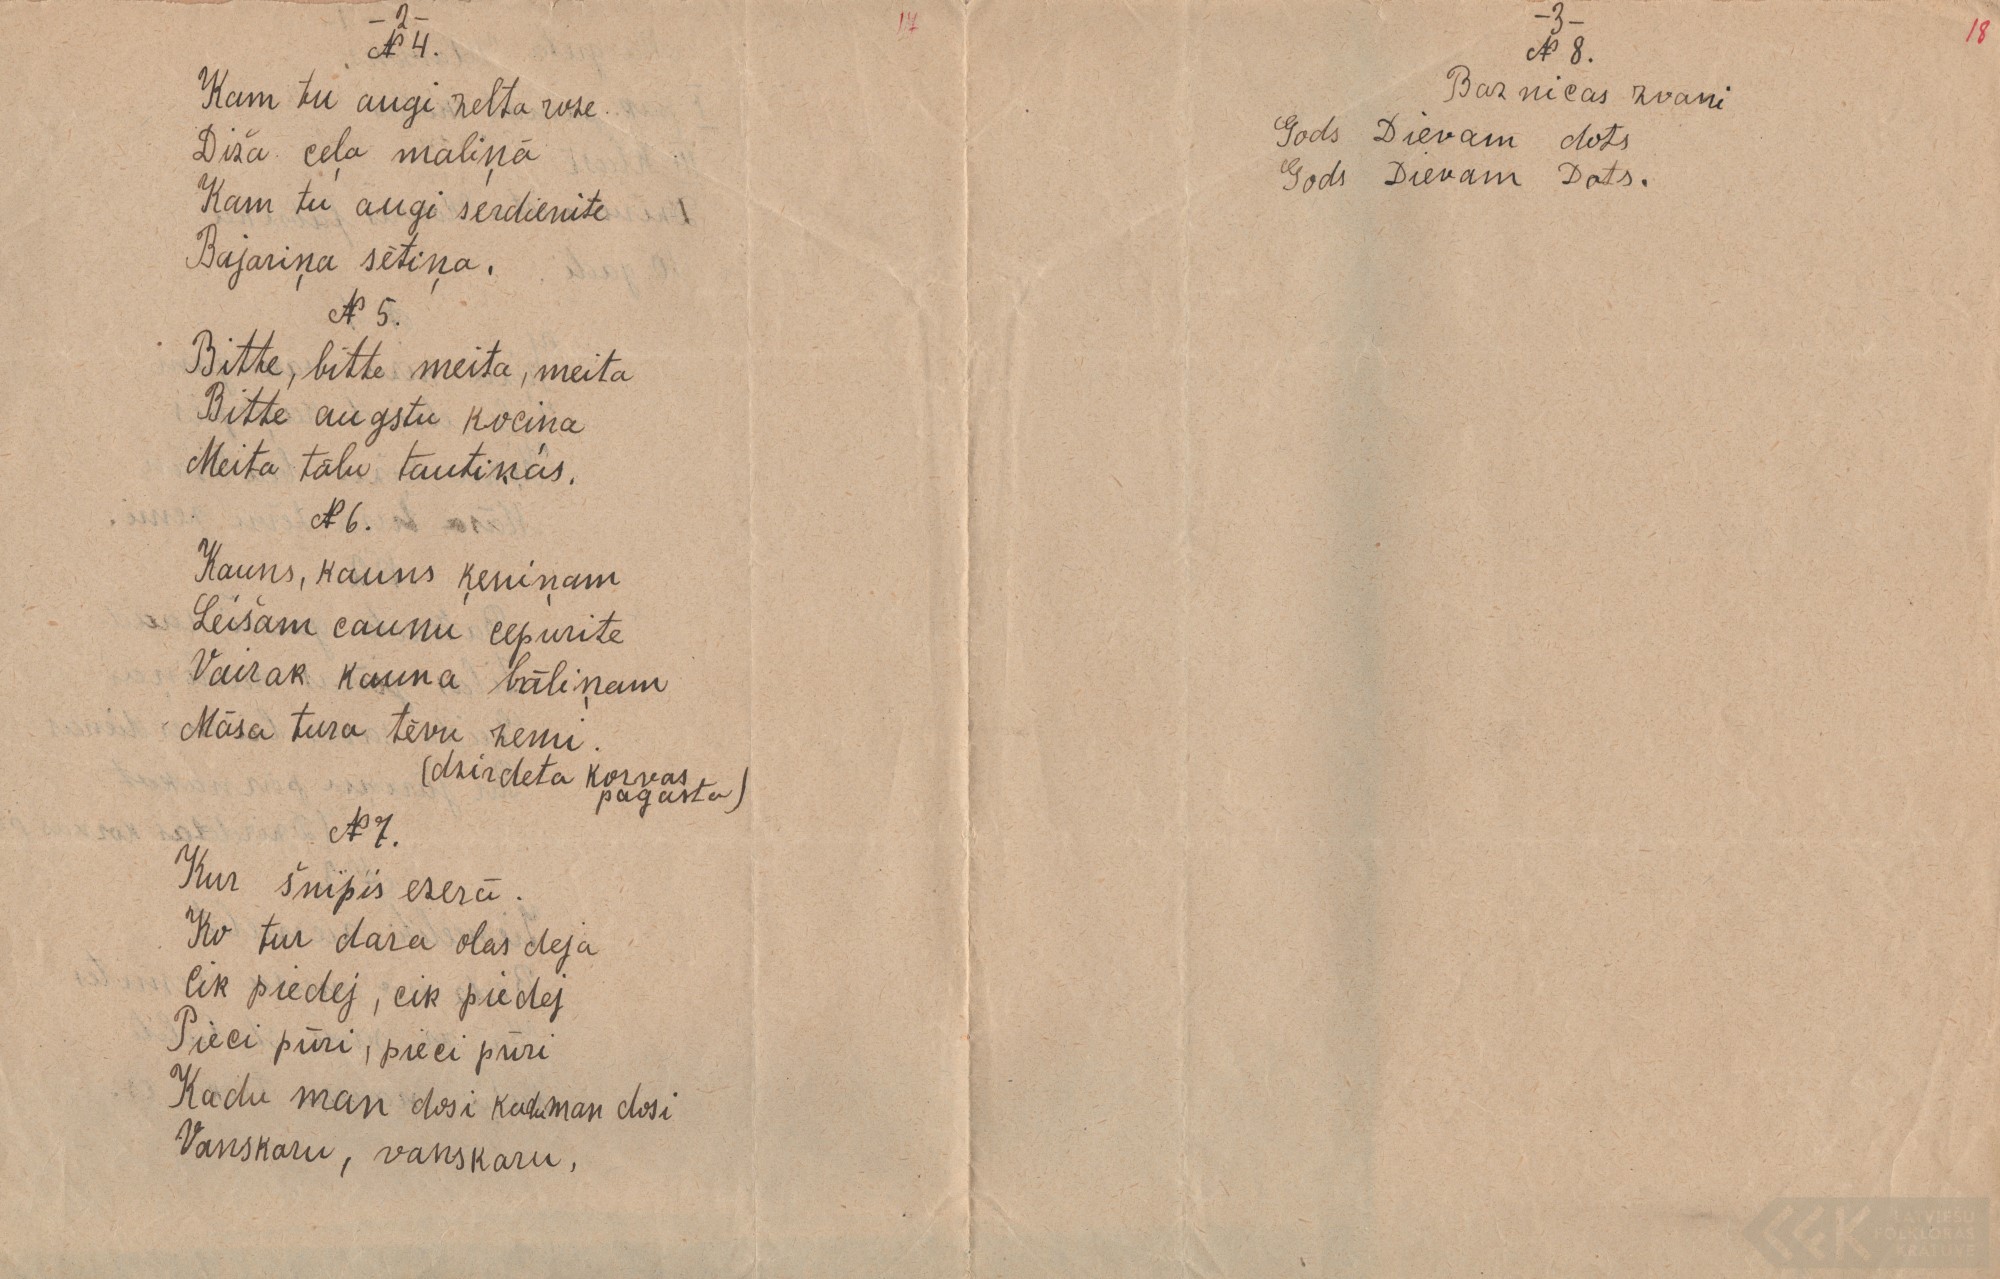 -2-
17
№ 4.
Kam tu augi zelta roze.
Diža ceļa maliņā
Kam tu augi serdienite
Bajariņa sētiņa.
№ 5.
Bitte, bitte meita, meita
Bitte augstu kociņa
Meita tālu tautiņās.
№ 6.
Kauns, kauns ķeniņam
Leišam caunu cepurite
Vairak kauna bāliņam
Māsa tura tēvu zemi.
(dzirdeta Korvas
pagasta)
№ 7.
Kur šnipis ezerā.
Ko tur dara olas deja
Cik piedej, cik piedej
Pieci pūri, pieci pūri
Kadu man dosi kadu man dosi
Vanskaru, vanskaru,
-3-
18
№ 8.
Baznicas zvani
Gods Dievam dots
Gods Dievam Dots.
LATVIEŠU
FOLKLORAS
KRĀTUVE